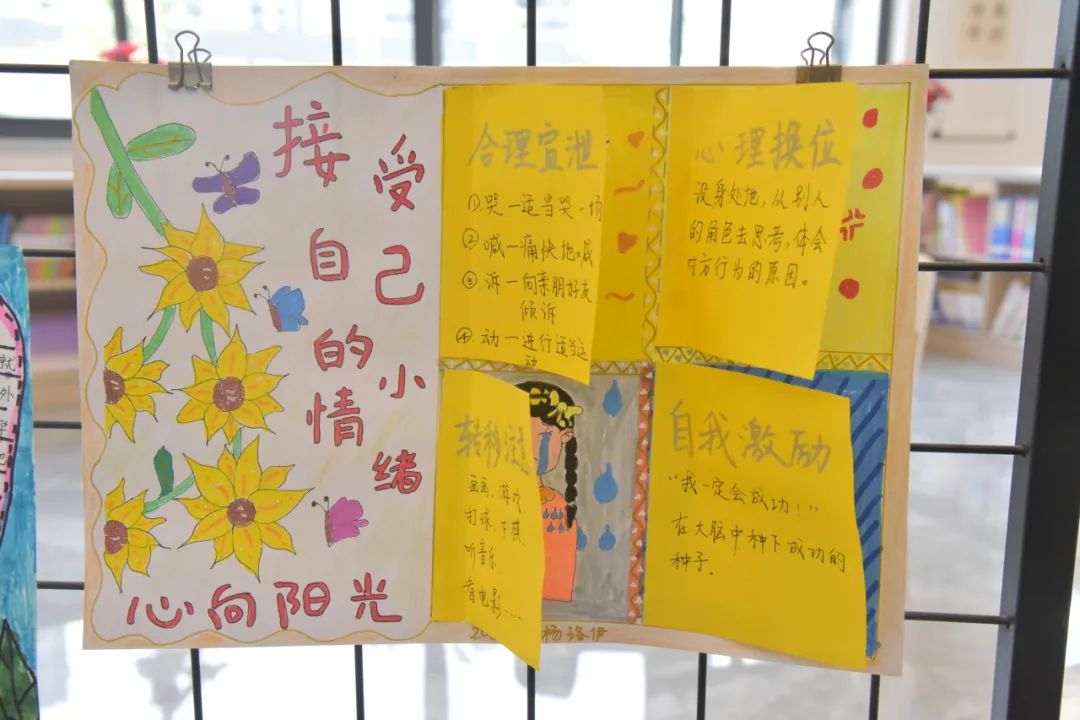 接受
自己
的小
情绪
心向阳光
合理宣泄
①哭一适当哭一场
②喊一痛快地喊
③诉一向亲朋好友
倾诉
④动一进行适当运
动
心理换位
设身处地,从别人
的角色去思考,体会
对方行为的原因。
转移注
画画、游戏
打球、下棋、
听音乐
看电影……
自我激励
“我一定会成功!”
在大脑中种下成功的
种子.
杨珞伊
就
外